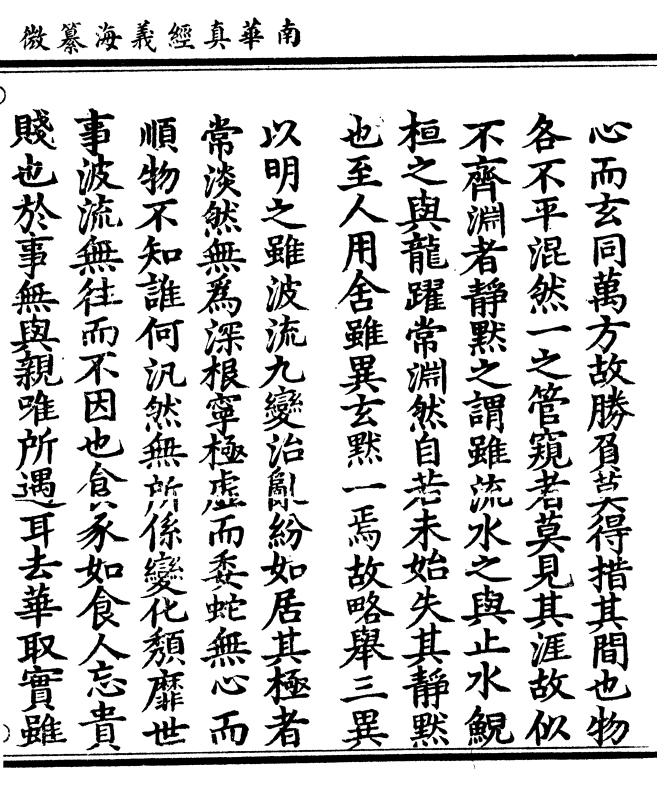 南華真經義海纂微
心而玄同萬方故勝負莫得措其間也物
各不平混然一之管窺者莫見其涯故似
不齊淵者靜默之謂雖流水之與止水鯢
桓之與龍躍常淵然自若未始失其靜默
也至人用舍雖異玄默一焉故略舉三異
以明之雖波流九變治亂紛如居其極者
常淡然無為深根寧極虛而委蛇無心而
順物不知誰何汎然無所係變化頹靡世
事波流無往而不因也食豕如食人忘貴
賤也於事無與親唯所遇耳去華取實雖